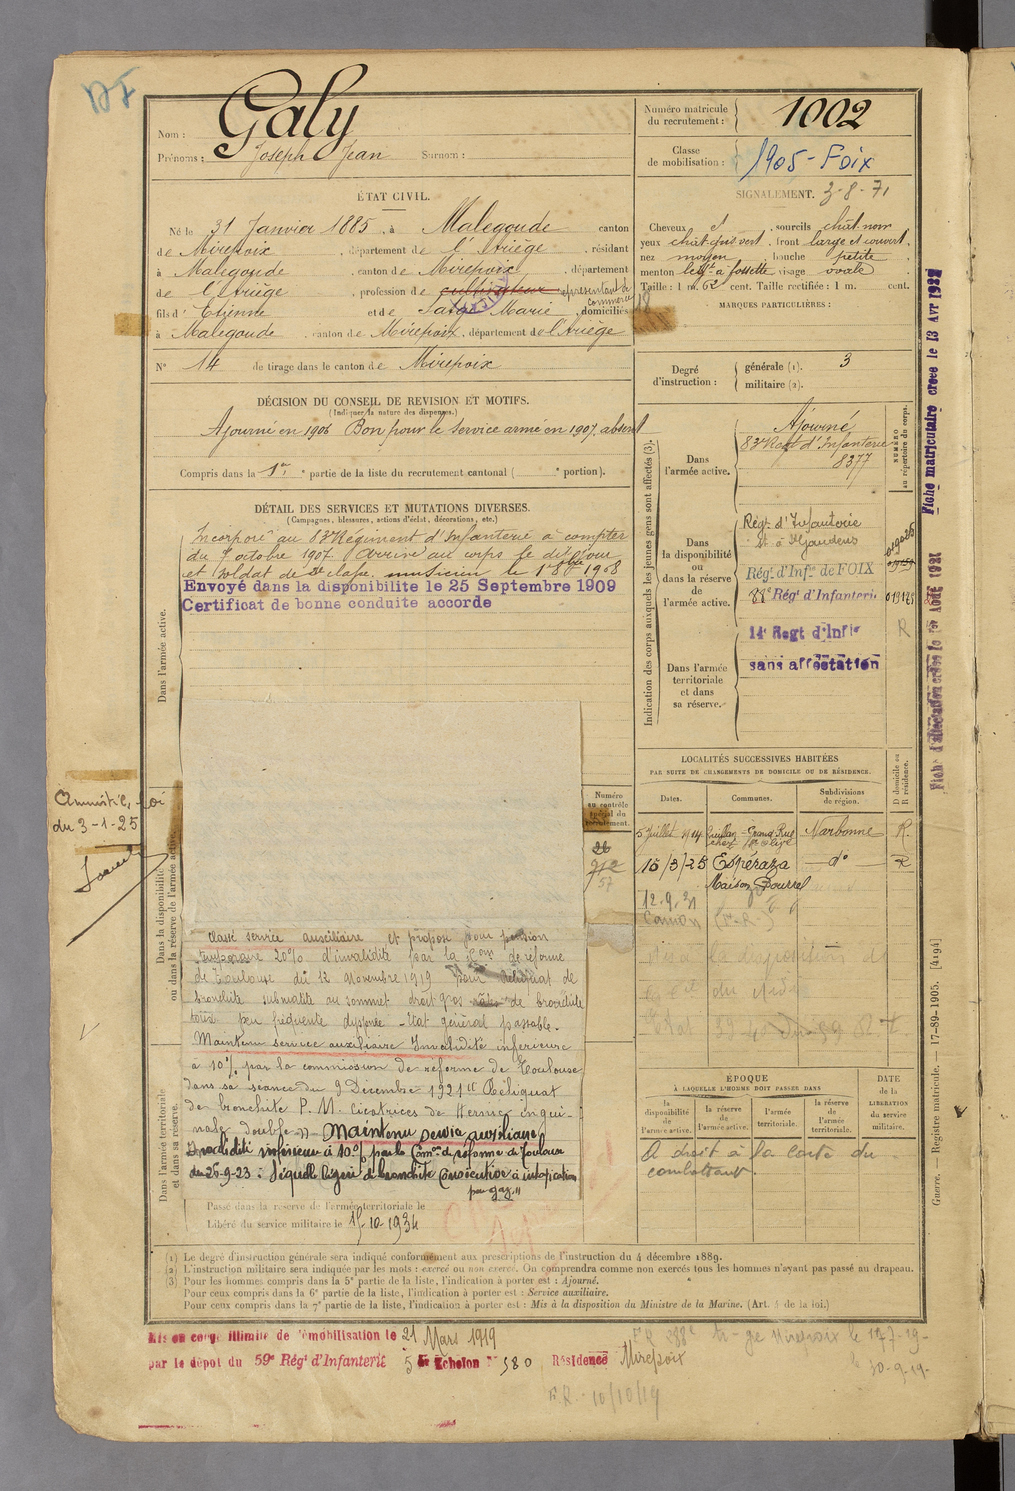 DF
Nom : Galy
Prénoms : Joseph Jean Surnom :
Numéro matricule du recrutement : 1002
Classe de mobilisation : 1905 - Foix
ÉTAT CIVIL.
Né le 31 Janvier 1885, à Malegoude canton
de Mirepoix, département de l'Ariège, résidant
à Malegoude, canton de Mirepoix, département
de l'Ariège, profession de cultivateur représentant de commerce
fils d'Etienne et de Marie, domiciliés
à Malegoude, canton de Mirepoix, département de l'Ariège
N° 14 de tirage dans le canton de Mirepoix
SIGNALEMENT. 3-8-71
Cheveux, sourcils chât noir
yeux chât gris vert, front large et couvert,
nez moyen, bouche petite,
menton à fossette, visage ovale
Taille : 1 m. 62 cent. Taille rectifiée : 1 m. cent.
MARQUES PARTICULIÈRES :
Degré d'instruction :
générale (1). 3
militaire (2).
DÉCISION DU CONSEIL DE REVISION ET MOTIFS.
(Indiquer la nature des dispenses.)
Ajourné en 1906 Bon pour le service armé en 1907. absent
Compris dans la 1re partie de la liste du recrutement cantonal ( e portion).
DÉTAIL DES SERVICES ET MUTATIONS DIVERSES.
(Campagnes, blessures, actions d'éclat, décorations, etc.)
Dans l'armée active.
Incorporé au 83e Régiment d'Infanterie à compter
du 7 octobre 1907. Arrivé au corps le dit jour
et soldat de 2e classe. musicien le 1908
Envoyé dans la disponibilite le 25 Septembre 1909
Certificat de bonne conduite accorde
Indication des corps auxquels les jeunes gens sont affectés (3).
NUMÉRO au répertoire du corps.
Dans l'armée active.
Ajourné
83e Regt d'Infanterie
8377
Dans la disponibilité ou dans la réserve de l'armée active.
Rég. d'Infanterie
St à St Gaudens
Rég. d'Infie de FOIX
88e Rég. d'Infanterie
Dans l'armée territoriale et dans sa réserve.
14e Regt d'Infie
sans affectation
R
Fiche matriculaire creee le 13 Avr 1927
Fiche d'affectation creee le 1er Août 1921
Amnistié, Loi
du 3-1-25
Dans la disponibilité ou dans la réserve de l'armée active.
Numéro au contrôle spécial du recrutement.
LOCALITÉS SUCCESSIVES HABITÉES
PAR SUITE DE CHANGEMENTS DE DOMICILE OU DE RÉSIDENCE.
Dates. Communes. Subdivisions de région. D domicile ou R résidence.
5 Juillet 1914 Quillan - Grand Rue Narbonne R.
15/3/25 Espéraza — do — R
Maison Bourrel
12.9.31
classé service auxiliaire et proposé pour pension
temporaire 20% d'invalidité par la Cons de réforme
de Toulouse du 12 Novembre 1919 pour reliquat de
bronchite submatité au sommet droit gros de bronchite
toux peu fréquente dyspnée - Etat général passable.
Maintenu service auxiliaire Invalidité inférieure
à 10% par la commission de réforme de Toulouse
dans sa séance du 9 Décembre 1921 " Reliquat
de bronchite P. M. Cicatrices de Hernie ingui-
nale double " Maintenu service auxiliaire
Invalidité inférieure à 10% par la Comon de réforme de Toulouse
du 26-9-23 : Séquelle légère de bronchite consécutive à intoxication
par gaz. "
Dans l'armée territoriale et dans sa réserve.
Passé dans la réserve de l'armée territoriale le
Libéré du service militaire le 15-10-1934
ÉPOQUE
À LAQUELLE L'HOMME DOIT PASSER DANS
la disponibilité de l'armée active. la réserve de l'armée active. l'armée territoriale. la réserve de l'armée territoriale.
DATE de la LIBÉRATION du service militaire.
A droit à la carte du
combattant.
(1) Le degré d'instruction générale sera indiqué conformément aux prescriptions de l'instruction du 4 décembre 1889.
(2) L'instruction militaire sera indiquée par les mots : exercé ou non exercé. On comprendra comme non exercés tous les hommes n'ayant pas passé au drapeau.
(3) Pour les hommes compris dans la 5e partie de la liste, l'indication à porter est : Ajourné.
Pour ceux compris dans la 6e partie de la liste, l'indication à porter est : Service auxiliaire.
Pour ceux compris dans la 7e partie de la liste, l'indication à porter est : Mis à la disposition du Ministre de la Marine. (Art. 4 de la loi.)
Guerre. — Registre matricule. — 17-89-1905. [4194]
Mis en congé illimité de démobilisation le 21 Mars 1919
par le dépôt du 59e Rég. d'Infanterie 5e Echelon N° 580 Résidence Mirepoix
F.R. 10/10/19